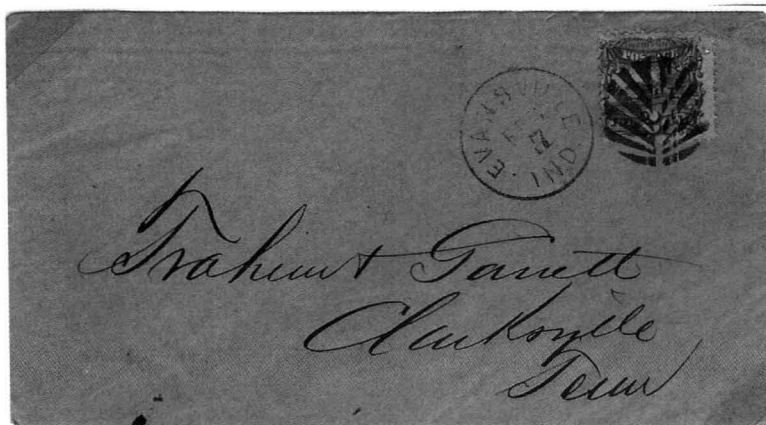 EVANSVILLE
IND.
Trahern & Garrett
Clarksville
Tenn